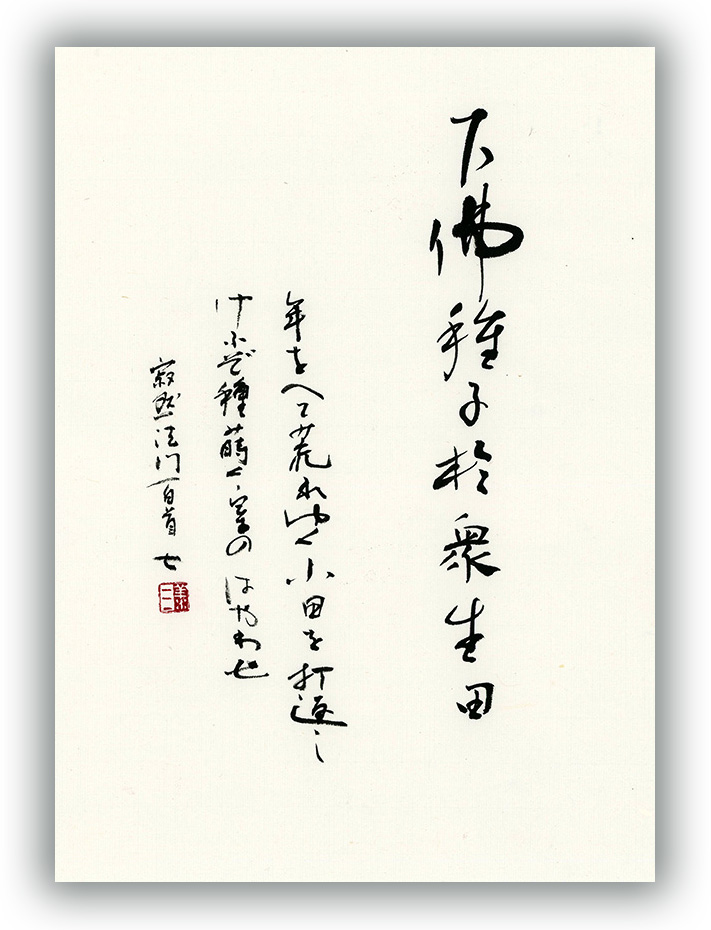 下佛種子於衆生田
年をへて荒れゆく小田を打返し
けふぞ種蒔く室のはやわせ
寂然法門百首 七